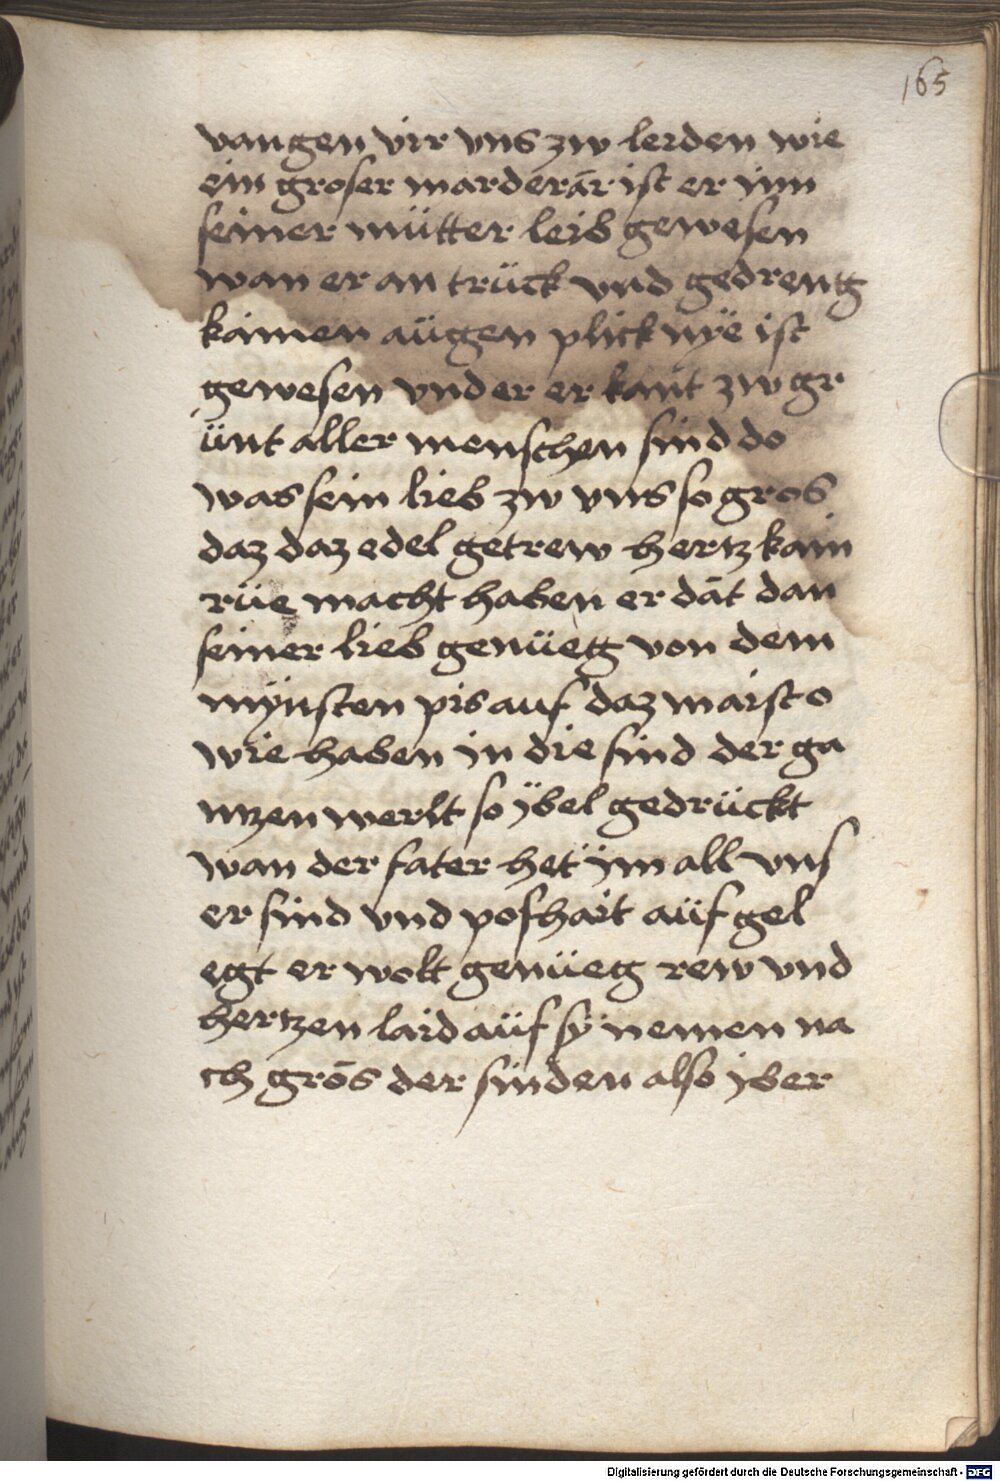 165
vangen vir vns zw leiden wie
ein groser marderär ist er inn
seiner mütter leib gewesen
wan er an trück vnd gedreng
kainen aügen plick nÿe ist
gewesen vnd er er kant zw gr
ünt aller menschen sind do
was sein lieb zw vns so gros
daz daz edel getrew hertz kain
rüe macht haben er dät dan
seiner lieb genüeg von dem
mÿnsten pis auf daz maist o
wie haben in die sind der ga
ntzen werlt so ÿbel gedrückt
wan der fater het im all vns
er sind vnd poshait aüf gel
egt er wolt genüeg rew vnd
hertzen laid aüf sÿ nemen na
ch grös der sinden also ÿber
Digitalisierung gefördert durch die Deutsche Forschungsgemeinschaft - DFG